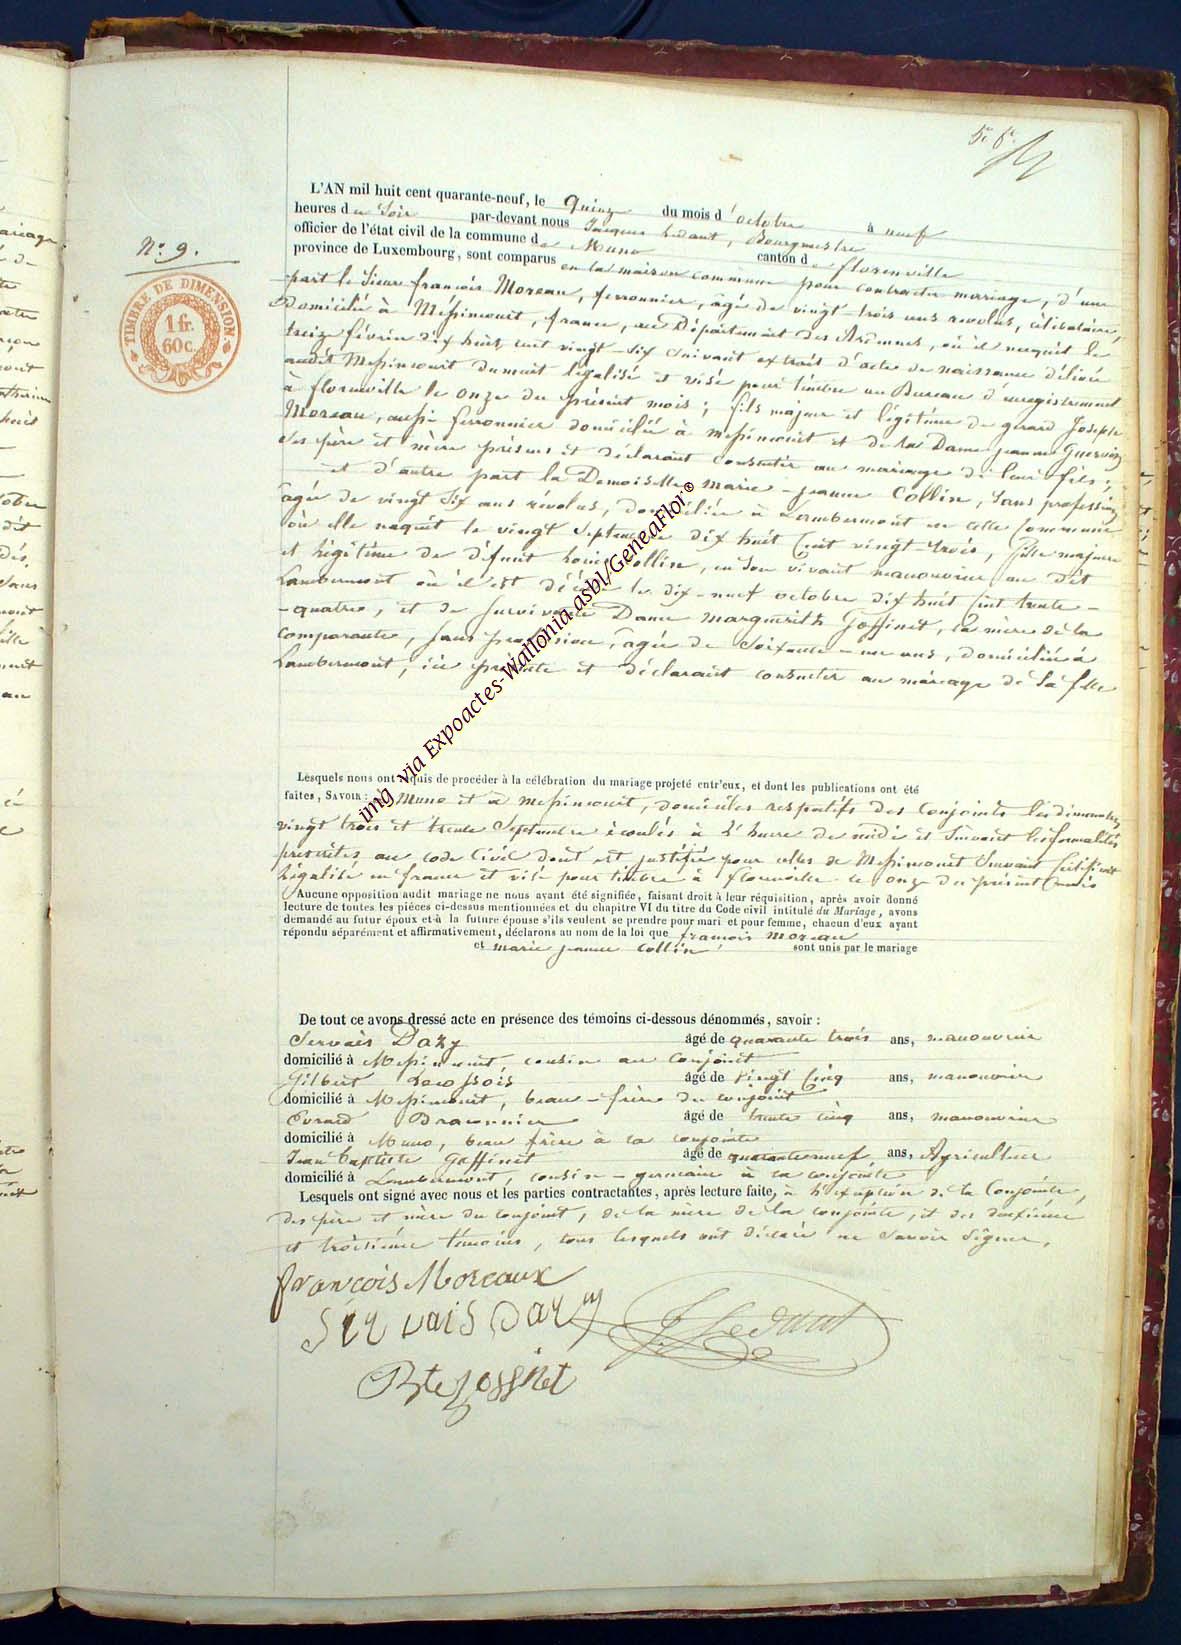 5e fe
N.o 9.
TIMBRE DE DIMENSION
1 fr.
60 c.
L'AN mil huit cent quarante-neuf, le quinze du mois d'octobre à neuf
heures du Soir par-devant nous Jacques Ledant, Bourgmestre
officier de l'état civil de la commune de Muno canton de florenville
province de Luxembourg, sont comparus en la maison commune pour contracter mariage, d'une
part le Sieur françois Moreau, ferronnier, âgé de vingt-trois ans revolus, célibataire,
domicilié à Messincourt, france, au Département des Ardennes, où il naquit le
treize février dix huit cent vingt-six suivant extrait d'acte de naissance délivré
audit Messincourt dument légalisé et visé pour timbre au Bureau d'enregistrement
à florenville le onze du présent mois; fils majeur et légitime de gerard Joseph
Moreau, aussi ferronnier domicilié à messincourt et de la Dame jeanne
ses père et mère présens et déclarant consentir au mariage de leur fils;
et d'autre part la Demoiselle marie-jeanne Collin, sans profession
âgée de vingt six ans révolus, domiciliée à Lambermont en cette Commune
où elle naquit le vingt Septembre dix huit Cent vingt-trois, fille majeure
et légitime de défunt Louis Collin, en son vivant manouvrier au dit
Lambermont où il est décédé le dix-neuf octobre dix huit Cent trente-
-quatre, et de survivante Dame marguerite Goffinet, la mère de la
comparante, sans profession, âgée de soixante-un ans, domiciliée à
Lambermont, ici présente et déclarant consentir au mariage de sa fille
img via Expoactes-Wallonia.asbl/GeneaFlor®
Lesquels nous ont requis de procéder à la célébration du mariage projeté entr'eux, et dont les publications ont été
faites, SAVOIR: à Muno et à messincourt, domiciles respectifs des Conjoints les dimanches
vingt trois et trente Septembre écoulés à l'heure de midi et suivant les formalités
prescrites au code Civil dont est justifié pour celles de Messincourt suivant Certificat
légalisé en france et visé pour timbre à florenville le onze du présent mois
Aucune opposition audit mariage ne nous ayant été signifiée, faisant droit à leur réquisition, après avoir donné
lecture de toutes les pièces ci-dessus mentionnées et du chapitre VI du titre du Code civil intitulé du Mariage, avons
demandé au futur époux et à la future épouse s'ils veulent se prendre pour mari et pour femme, chacun d'eux ayant
répondu séparément et affirmativement, déclarons au nom de la loi que françois moreau
et marie jeanne Collin sont unis par le mariage
De tout ce avons dressé acte en présence des témoins ci-dessous dénommés, savoir:
Servais Dazy âgé de quarante trois ans, manouvrier
domicilié à Messincourt, cousin au conjoint
Gilbert âgé de Vingt Cinq ans, manouvrier
domicilié à Messincourt, beau-frère du conjoint
Evrard Braconnier âgé de trente cinq ans, manouvrier
domicilié à Muno, beau frère à la conjointe
Jean baptiste Goffinet âgé de quarante neuf ans, Agriculteur
domicilié à Lambermont, cousin-germain à la conjointe
Lesquels ont signé avec nous et les parties contractantes, après lecture faite, à l'exception de la Conjointe,
des père et mère du conjoint, de la mère de la conjointe, et des deuxième
et troisième témoins, tous lesquels ont déclaré ne savoir Signer.
françois Moreaux
Servais Dazy
J. Ledant
Bte gossinet